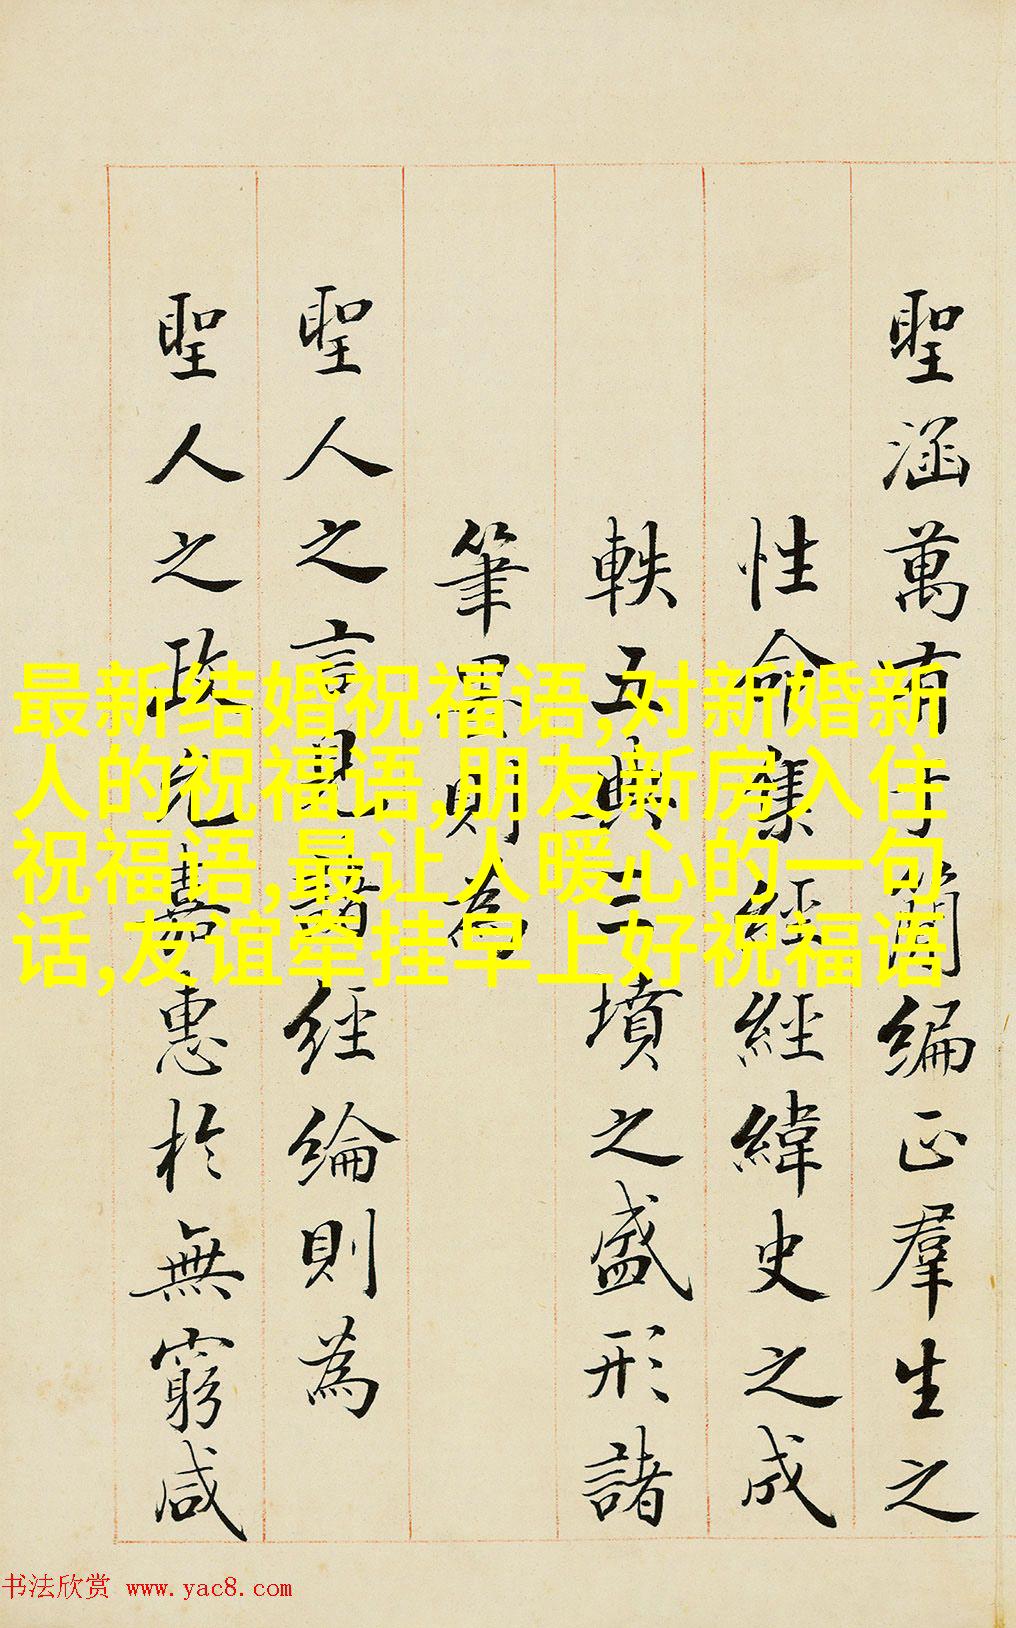 聖涵萬有於簡編正羣生之
性命集經經緯史之成
軼五典三墳之盛形諸
筆墨則為
聖人之言見諸經綸則為
聖人之政允嘉惠於無窮咸
最新结婚祝福语,对新婚新
人的祝福语,朋友新房入住
祝福语,最让人暖心的一句
话,友谊牵挂早上好祝福语
书法欣赏 www.yac8.com